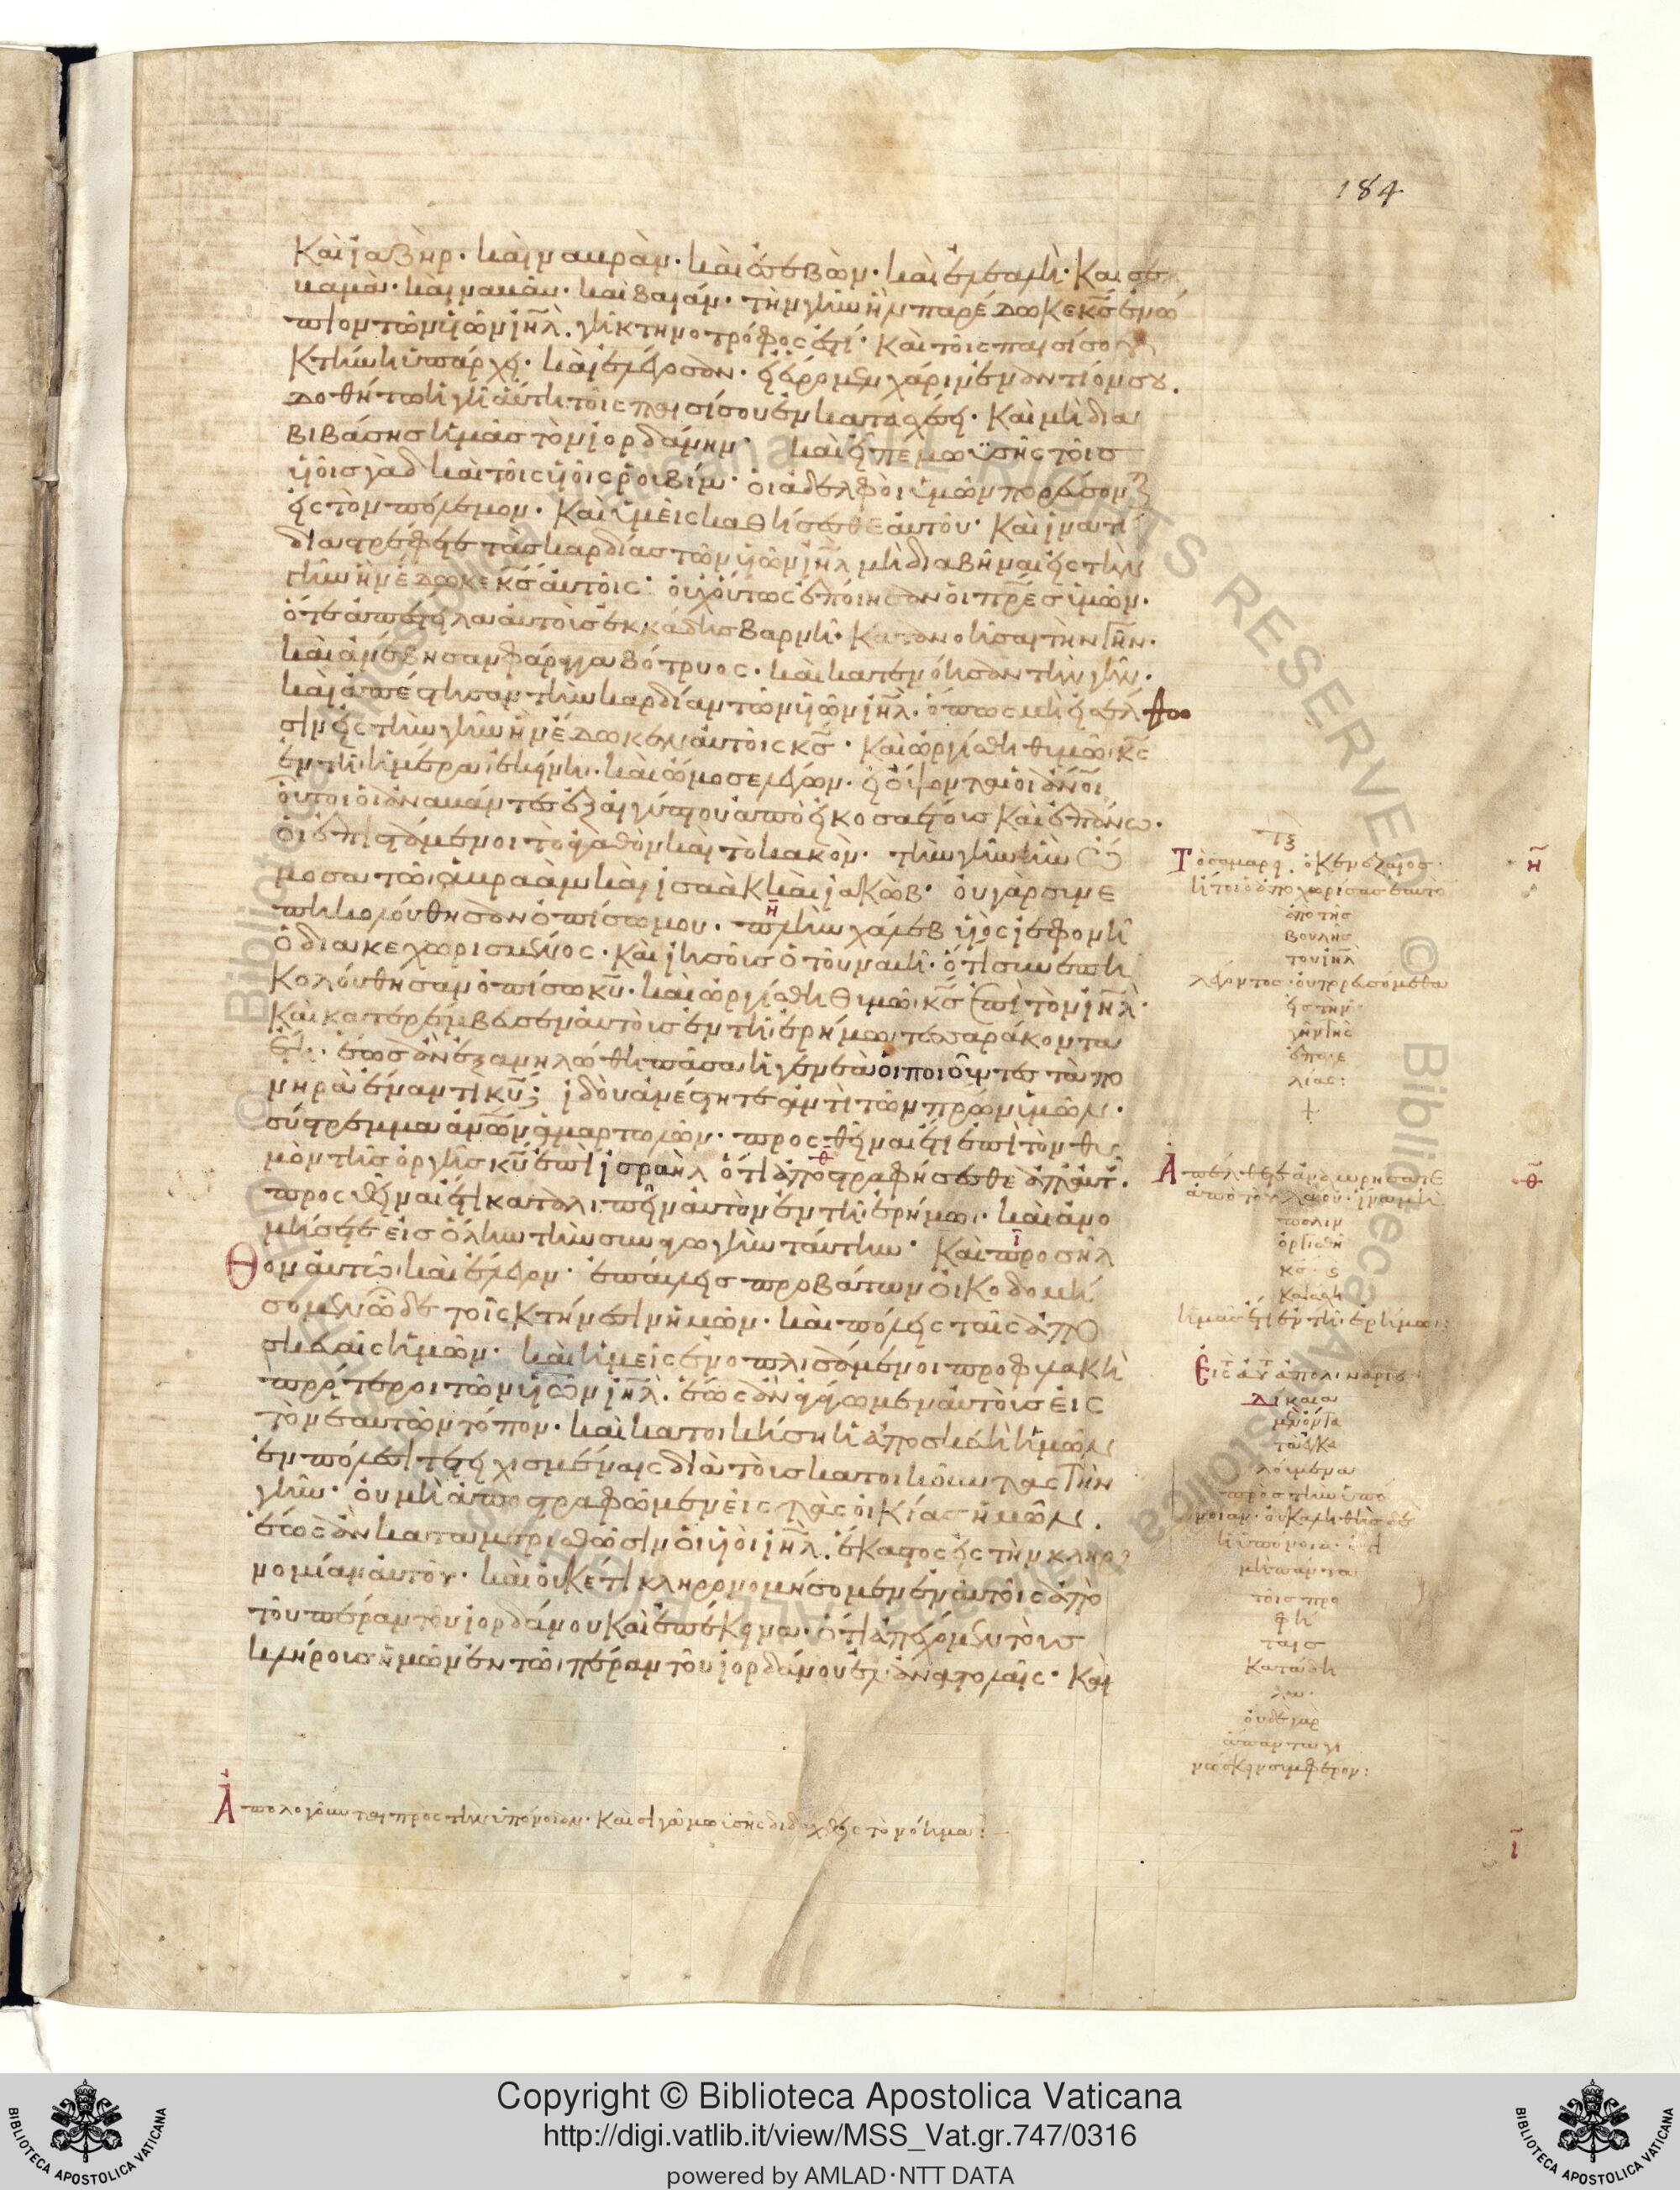 184
Καὶ ἰαζὴρ· καὶ ναμρὰμ· καὶ ἐσεβὼν· καὶ ἐλεαλὴ· Καὶ σε
βαμὰ· καὶ ναβαῦ· καὶ βαϊάν· τὴν γῆν ἣν παρέδωκε κ̅ς̅ ἐνώ
πιον τῶν υἱῶν ι̅η̅λ̅· γῆ κτηνοτρόφος ἐστί· καὶ τοῖς παισί σου
κτήνη ὑπάρχει· καὶ ἔλεγον· εἰ εὕρομεν χάριν ἐναντίον σου·
δοθήτω ἡ γῆ αὕτη τοῖς παισί σου ἐν κατασχέσει· Καὶ μὴ δια
βιβάσης ἡμᾶς τὸν ἰορδάνην· καὶ εἶπε μωϋσῆς τοῖς
υἱοῖς γὰδ καὶ τοῖς υἱοῖς ῥουβίμ· οἱ ἀδελφοὶ ὑμῶν πορεύσονται
εἰς τὸν πόλεμον· Καὶ ὑμεῖς καθήσεσθε αὐτοῦ· Καὶ ἱνατί
διαστρέφετε τὰς καρδίας τῶν υἱῶν ι̅η̅λ̅ μὴ διαβῆναι εἰς τὴν
γῆν ἣν ἔδωκε κ̅ς̅ αὐτοῖς· οὐχ οὕτως ἐποίησαν οἱ π̅ρ̅ε̅ς̅ ὑμῶν·
ὅτε ἀπέστειλα αὐτοὺς ἐκ κάδης βαρνὴ· κατανοῆσαι τὴν γῆν·
καὶ ἀνέβησαν φάραγγα βότρυος· καὶ κατενόησαν τὴν γῆν·
καὶ ἀπέστησαν τὴν καρδίαν τῶν υἱῶν ι̅η̅λ̅· ὅπως μὴ εἰσέλθω
σιν εἰς τὴν γῆν ἣν ἔδωκεν αὐτοῖς κ̅ς̅· Καὶ ὠργίσθη θυμῶ κ̅ς̅
ἐν τῆ ἡμέρα ἐκείνη· καὶ ὤμοσε λέγων· εἰ ὄψονται οἱ ἄνοι
οὗτοι οἱ ἀναβάντες ἐξ αἰγύπτου ἀπὸ εἰκοσαετοῦς καὶ ἐπάνω·
οἱ ἐπιστάμενοι τὸ ἀγαθὸν καὶ τὸ κακὸν· τὴν γῆν ἣν ὤ
μοσα τῶ ἀβραὰμ καὶ ἰσαὰκ καὶ ἰακὼβ· οὐ γὰρ σινε
πηκολούθησαν ὀπίσω μου· πλὴν χάλεβ υἱὸς ἰεφοννῆ
ὁ διακεχωρισμένος· καὶ ἰησοῦς ὁ τοῦ ναυῆ· ὅτι συνεπη
κολούθησαν ὀπίσω κ̅υ̅· καὶ ὠργίσθη θυμῶ κ̅ς̅ ἐπὶ τὸν ι̅η̅λ̅·
Καὶ κατερέμβευσεν αὐτοὺς ἐν τῆ ἐρήμω τεσσαράκοντα
ἔτη· ἕως ἂν ἐξανηλώθη πᾶσα ἡ γενεὰ οἱ ποιοῦντες τὰ πο
νηρὰ ἔναντι κ̅υ̅· ἰδοὺ ἀνέστητε ἀντὶ τῶν π̅ρ̅ω̅ν ὑμῶν·
σύστρεμμα ἀνῶν ἁμαρτωλῶν· προσθεῖναι ἔτι ἐπὶ τὸν θυ
μὸν τῆς ὀργῆς κ̅υ̅ ἐπὶ ἰσραὴλ ὅτι ἀποστραφήσεσθε ἀπ αὐτ·
προσθεῖναι ἔτι καταλιπεῖν αὐτὸν ἐν τῆ ἐρήμω· καὶ ἀνο
μήσετε εἰς ὅλην τὴν συναγωγὴν ταύτην· Καὶ προσῆλ
θον αὐτῶ καὶ ἔλεγον· ἐπαύλεις προβάτων οἰκοδομή
σομεν ὧδε τοῖς κτήνεσιν ἡμῶν· καὶ πόλεις ταῖς ἀπο
σκευαῖς ἡμῶν· καὶ ἡμεῖς ἐνοπλισάμενοι προφυλακὴ
πρότεροι τῶν υἱῶν ι̅η̅λ̅· ἕως ἂν ἀγάγωμεν αὐτοὺς εἰς
τὸν ἑαυτῶν τόπον· καὶ κατοικήση ἡ ἀποσκευὴ ἡμῶν
ἐν πόλεσι τετειχισμέναις διὰ τοὺς κατοικοῦντας τὴν
γῆν· οὐ μὴ ἀποστραφῶμεν εἰς τὰς οἰκίας ἡμῶν·
ἕως ἂν καταμερισθῶσιν οἱ υἱοὶ ι̅η̅λ̅· ἕκαστος εἰς τὴν κληρο
νομίαν αὐτοῦ· καὶ οὐκέτι κληρονομήσομεν ἐν αὐτοῖς ἀπὸ
τοῦ πέραν τοῦ ἰορδάνου καὶ ἐπέκεινα· ὅτι ἀπέχομεν τοὺς
κλήρους ἡμῶν ἐν τῶ πέραν τοῦ ἰορδάνου ἐν ἀνατολαῖς· Καὶ
Ἀπολογοῦνται πρὸς τὴν ὑπόνοιαν· Καὶ σιγᾶ μωϋσῆς διδαχθεὶς τὸ νόημα:
Τὸ σαμαρει ὁ κενεζαῖος·
ἤτοι ὁ ἀποχωρίσας ἑαυτὸ
ἀπὸ τῆς
βουλῆς
τοῦ ι̅η̅λ̅
λέγοντος· οὐ πορευσόμεθα
εἰς τὴν
γῆν τῆς
ἐπαγγε
λίας:
Ἀπέλθετε ἀναχωρήσατε
ἀπὸ τοῦ λαοῦ· ἵνα μὴ
πάλιν
ὀργισθῆ
κ̅ς̅
ἡμᾶς ἔτι ἐν τῆ ἐρήμω:
ἀπολινάριος
Δίκαια
μὲν ὄντα
τὰ ἐγκα
λούμενα
πρὸς τὴν ὑπό
νοιαν· οὐκ ἀληθὴς δὲ
ἡ ὑπόνοια·
μὴ πάντα
τοῖς προ
φή
ταις
κατάδη
λα·
οὐδὲ γὰρ
ἅπαντα γι
νώσκειν συμφέρον:
η̅
θ̅
ι̅